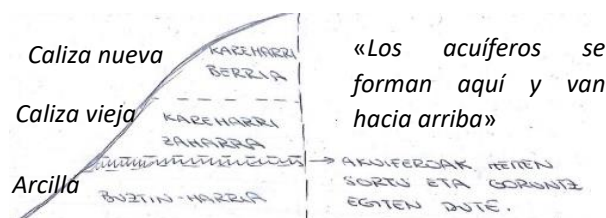 Caliza nueva
KAREHARRI
BERRIA
Caliza vieja
KAREHARRI
ZAHARRA
Arcilla
BUZTIN-HARRIA
«Los acuíferos se
forman aquí y van
hacia arriba»
→ AKUIFEROAK HEMEN
SORTU ETA GORUNTZ
EGITEN DUTE.